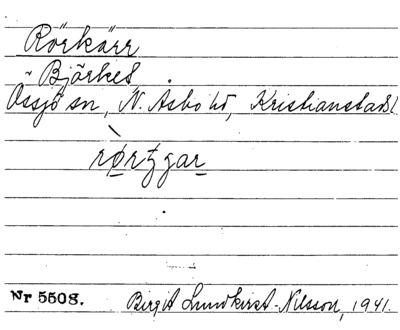 Rörkärr
Björket
Össjö sn, N. Åsbo hd, Kristianstads l
Nr 5508. Birgit Lundkvist-Nilsson, 1941.